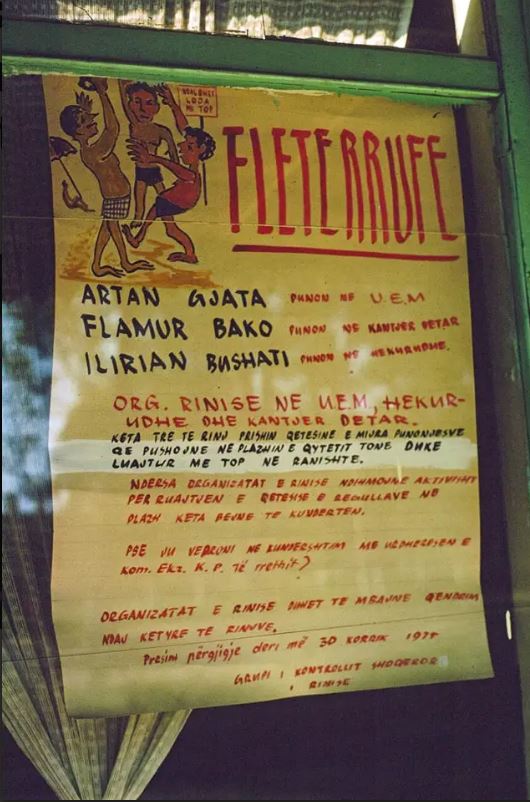 NDALOHET
LODA
ME TOP
FLETERRUFE
ARTAN GJATA PUNON NE U.E.M
FLAMUR BAKO PUNON NE KANTJER DETAR
ILIRIAN BUSHATI PUNON NE HEKURUDHE.
ORG. RINISE NE U.E.M, HEKUR-
UDHE DHE KANTJER DETAR.
KETA TRE TE RINJ PRISHIN QETESINE E MIJRA PUNONJESVE
QE PUSHOJNE NE PLAZHIN E QYTETIT TONE DUKE
LUAJTUR ME TOP NE RANISHTE.
NDERSA ORGANIZATAT E RINISE NDIHMOJNE AKTIVISHT
PER RUAJTJEN E QETESISE E RREGULLAVE NE
PLAZH KETA BEJNE TE KUNDERTEN.
PSE JU VEPRONI NE KUNDERSHTIM ME URDHERESEN E
Kom. Ekz. K. P. të rrethit?
ORGANIZATAT E RINISE DUHET TE MBAJNE QENDRIM
NDAJ KETYRE TE RINJVE.
Presim përgjigje deri më 30 KORRIK
GRUPI I KONTROLLIT SHOQEROR
I RINISE